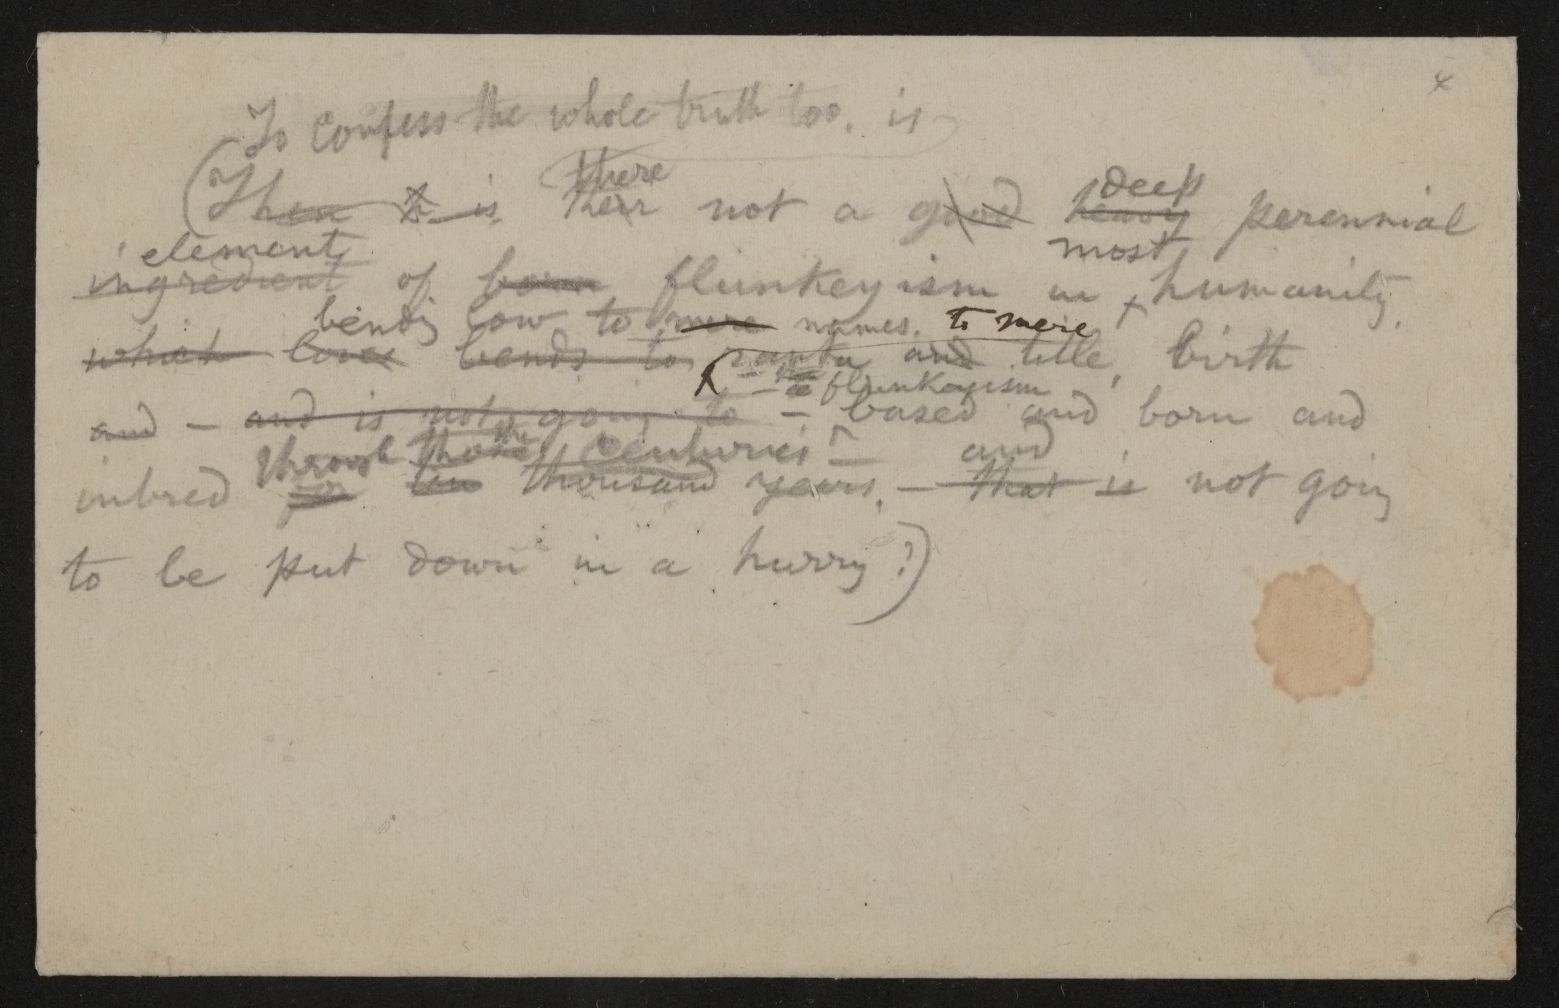 4
To confess the whole truth too, is
there deep
(Then it is their not a good heavy perennial
element most
ingredient of born flunkeyism in humanity,
bending low to mere names, to mere
which loves bends to rank and title, birth
flunkeyism
and — and is not going to — based and born and
through the centuries — and
inbred for ten thousand years, — that is not going
to be put down in a hurry?)